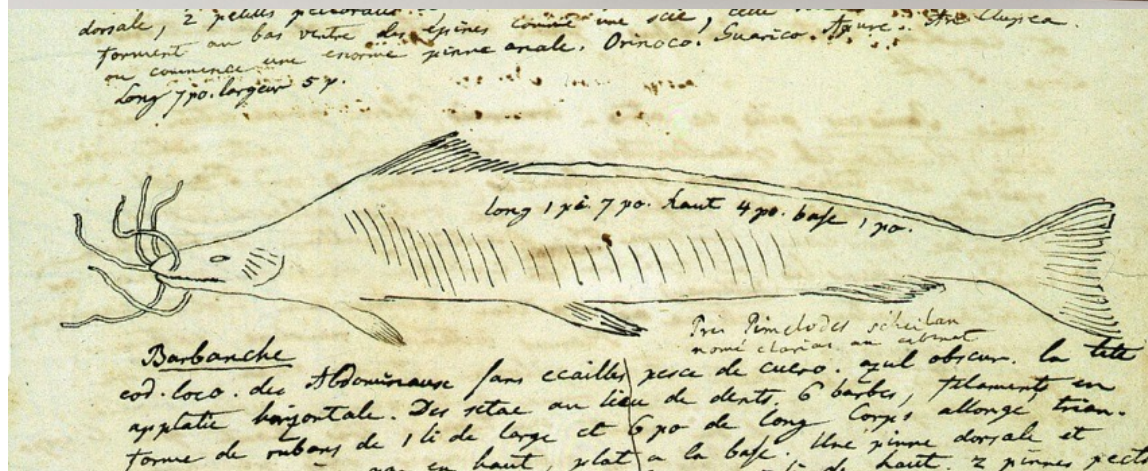 dorsale, 2 petites
forment au bas ventre des épines comme une scie, cette
ou commence une enorme pinne anale. Orinoco. Guarico. Apure.
Long 7 po. largeur 5 p.
long 1 pi. 7 po. haut 4 po. base 1 po.
Pimelodes
nomé clarias au cabinet
Barbanche
eod. loco. des Abdominaux sans ecailles pesce de cuero. azul obscur. la tete
applatie horizontale. Des setae au lieu de dents. 6 barbes, filaments, en
forme de rubans de 1 li de large et 6 po de long Corps allongé, trian-
en haut, plat a la base. Une pinne dorsale et
de haut. 2 pinnes pect